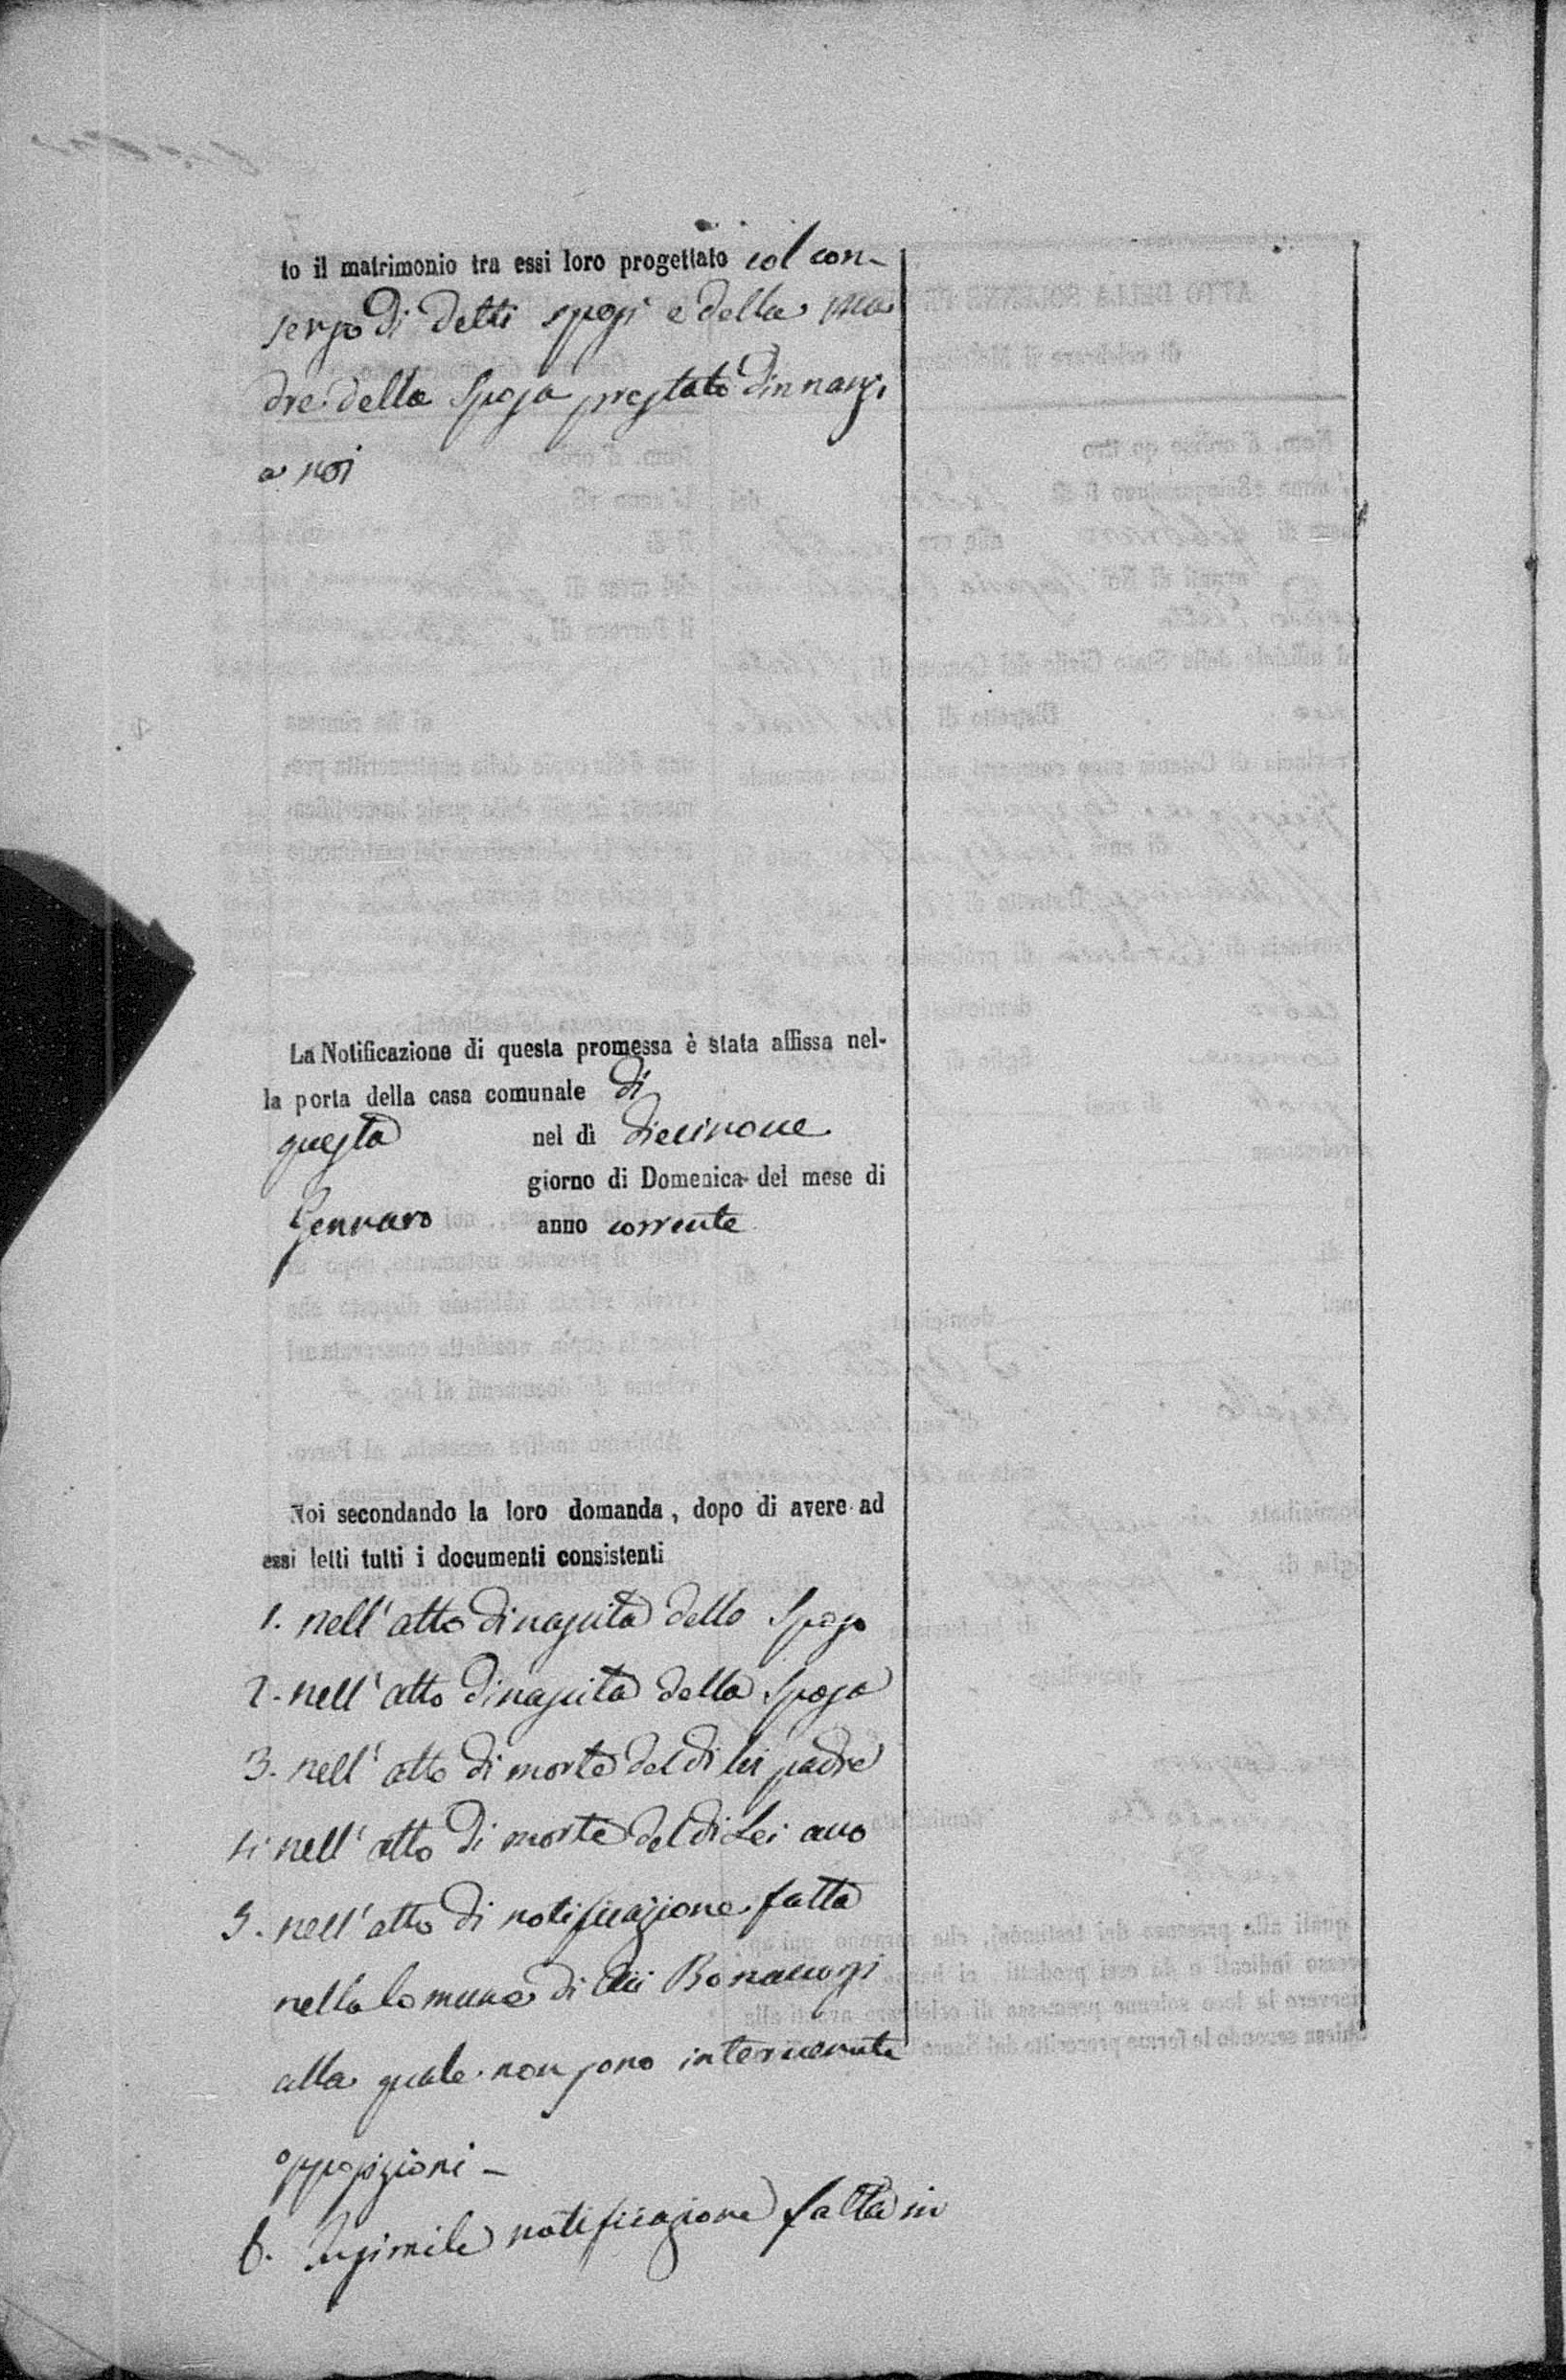 to il matrimonio tra essi loro progettato col con-
senso di detti sposi e della ma
dre della sposa prestato dinnanzi
a noi
La Notificazione di questa promessa è stata affissa nel-
la porta della casa comunale di
questa nel dì diecinove
giorno di Domenica del mese di
Gennaro anno corrente
Noi secondando la loro domanda, dopo di avere ad
essi letti tutti i documenti consistenti
1. nell' atto di nascita dello Sposo
2. nell' atto di nascita della Sposa
3. nell' atto di morte del di lei padre
4. nell' atto di morte del di Lei avo
5. nell' atto di notificazione fatta
nella Comune di Aci Bonaccorsi
alla quale non sono intervenute
opposizioni -
6. In simile notificazione fatta in